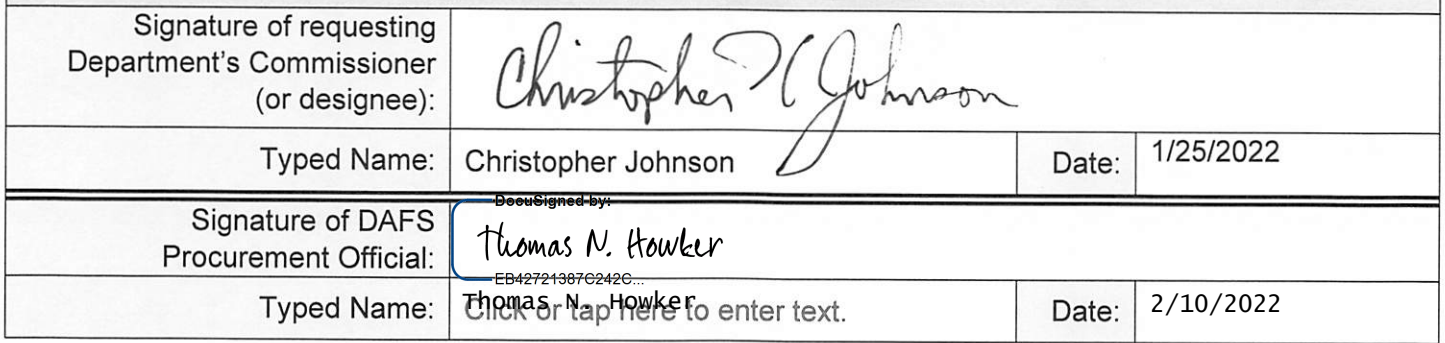 Signature of requesting
Department's Commissioner
(or designee):
Christopher Johnson
Typed Name:
Christopher Johnson
Date:
1/25/2022
Signature of DAFS
Procurement Official:
DocuSigned by:
Thomas N. Howker
EB42721387C242C...
Typed Name:
Thomas N. Howker
Click or tap here to enter text.
Date:
2/10/2022